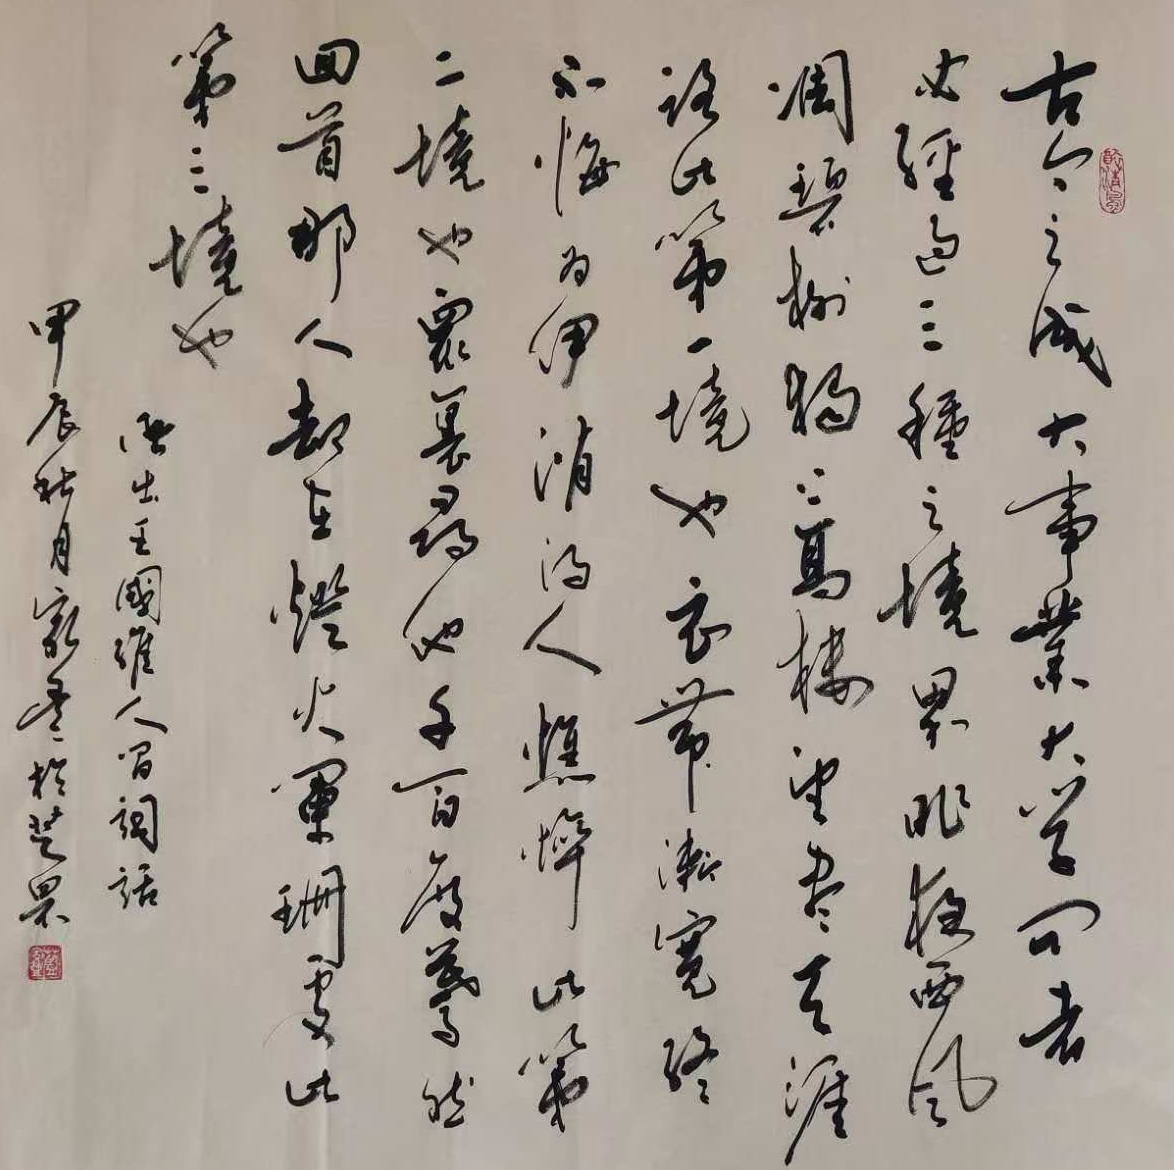 古今之成大事業大学问者
必經過三種之境界昨夜西風
凋碧樹獨上高樓望盡天涯
路此第一境也衣帶漸寬終
不悔为伊消得人憔悴此第
二境也眾裏尋他千百度驀然
回首那人却在燈火闌珊處此
第三境也
語出王國維人间詞話
甲辰秋月家於